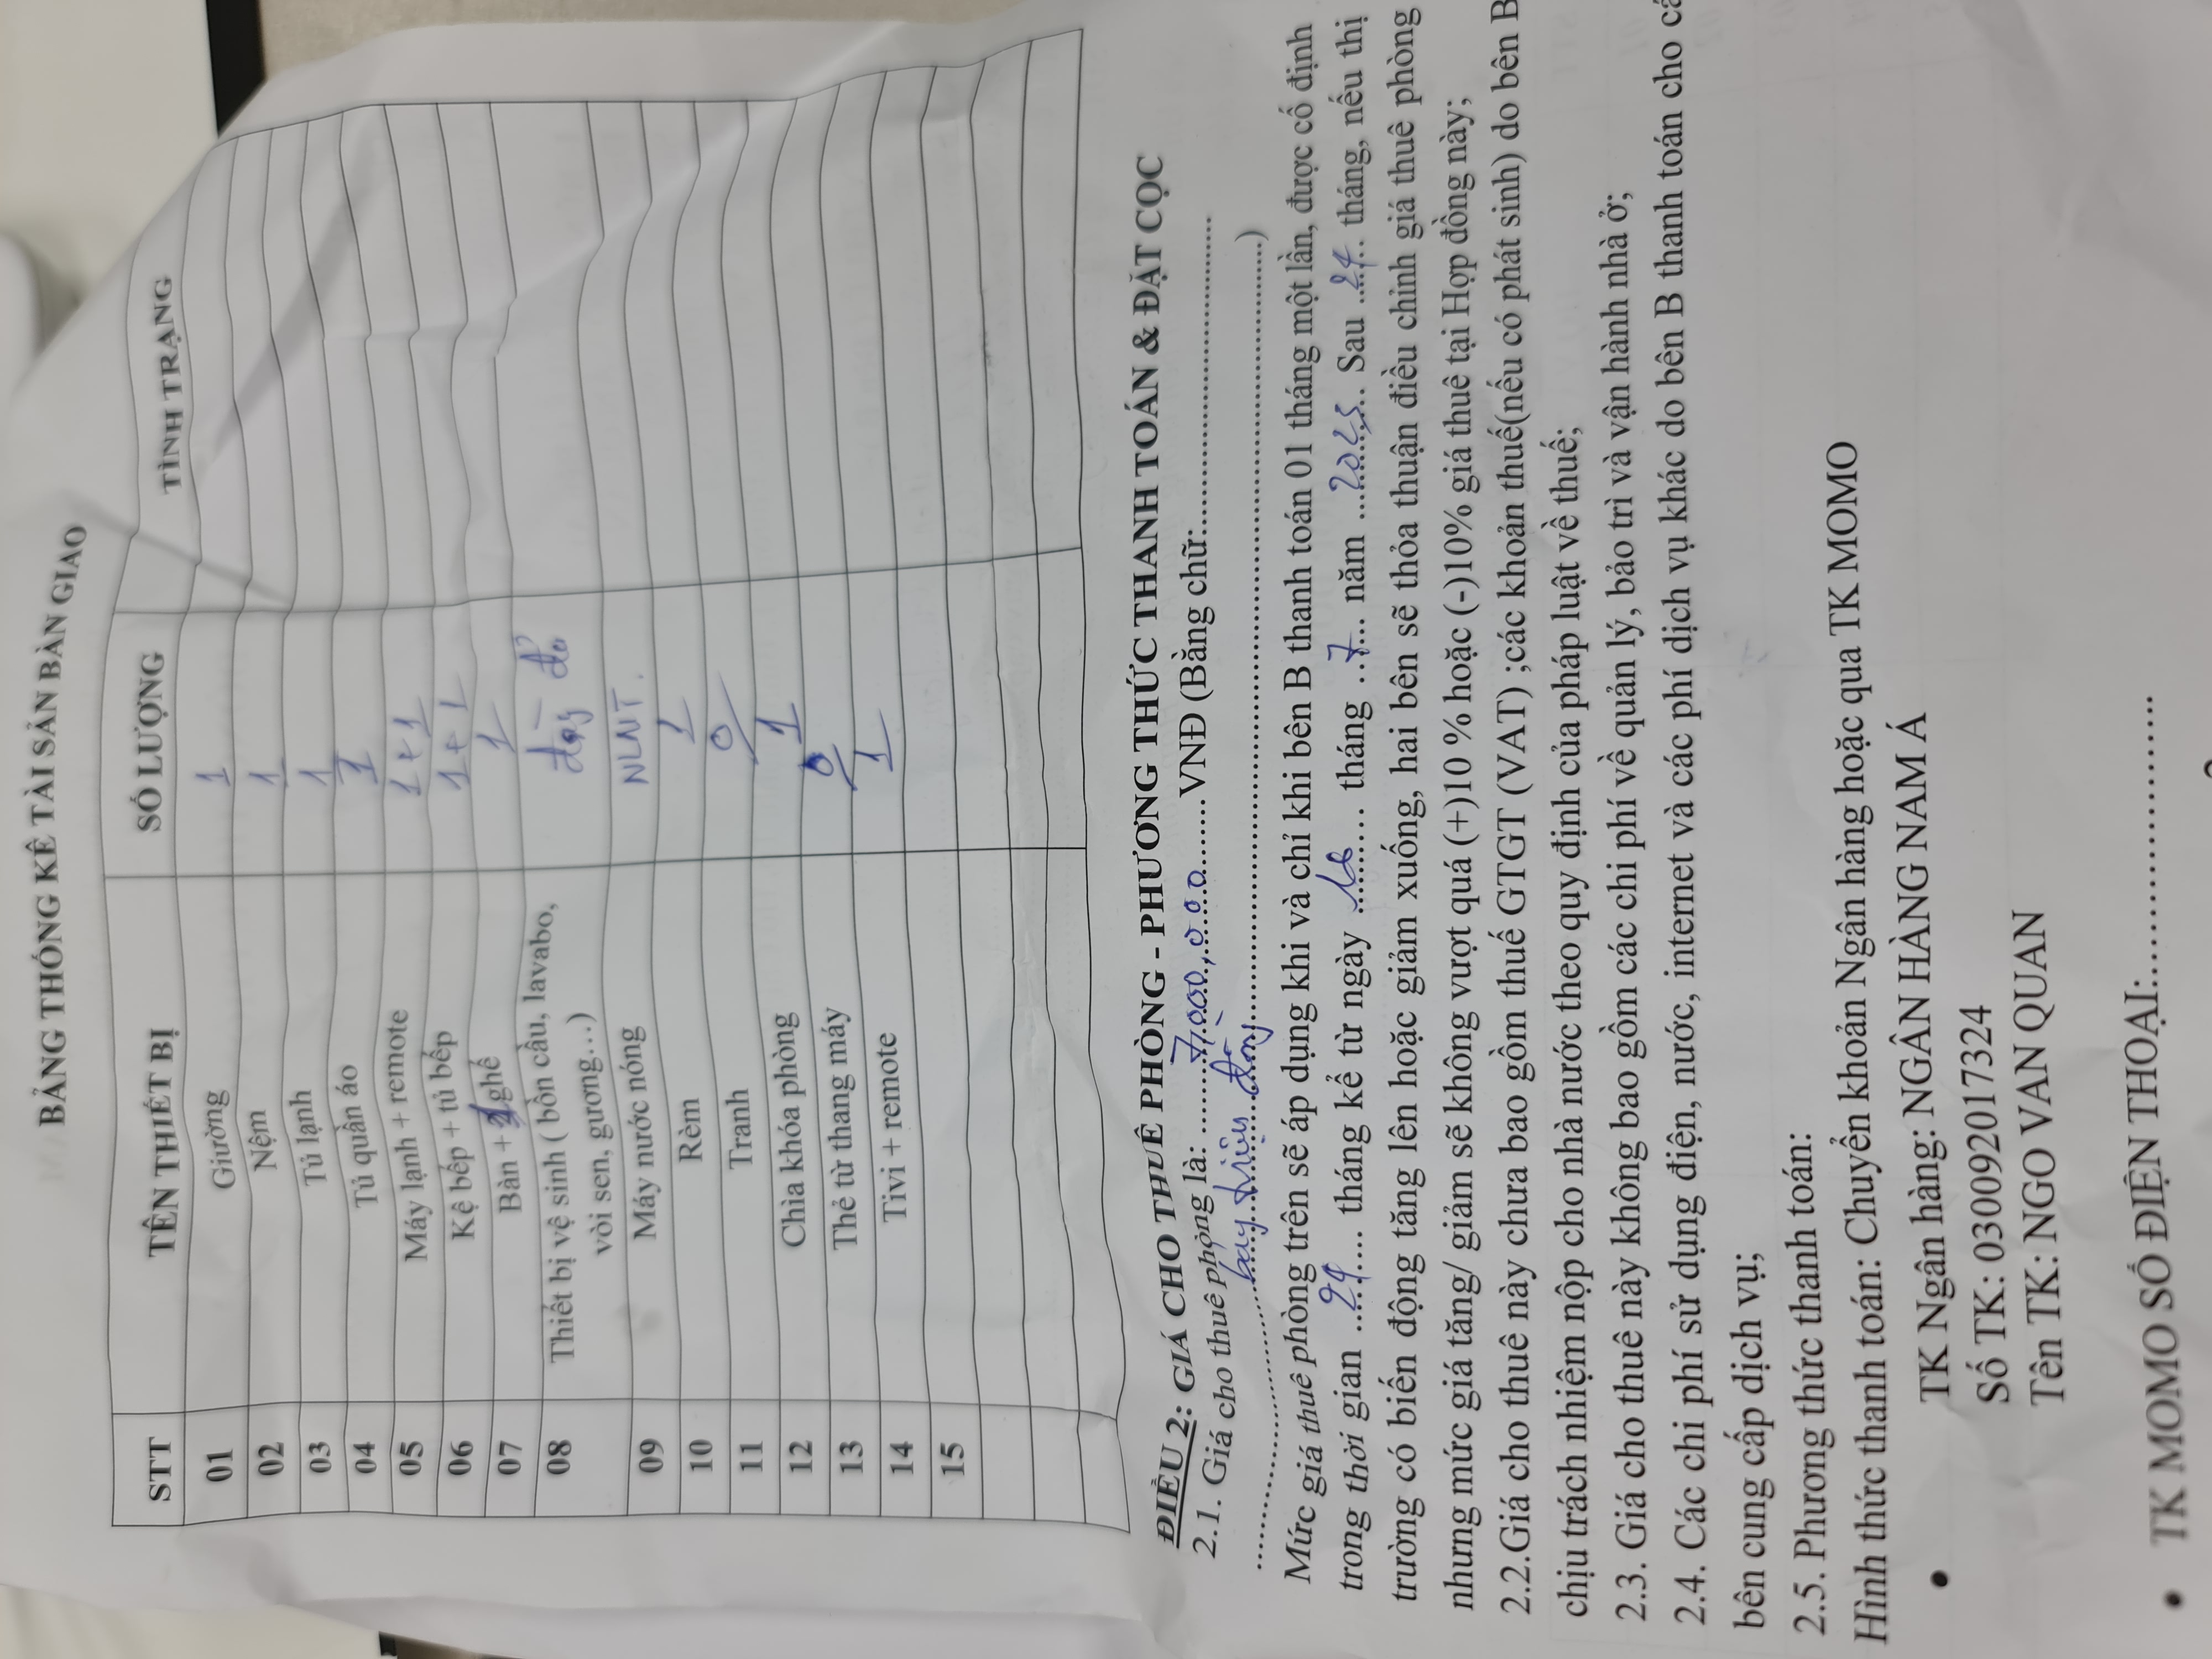 BẢNG THỐNG KÊ TÀI SẢN BÀN GIAO
STT TÊN THIẾT BỊ SỐ LƯỢNG TÌNH TRẠNG
01 Giường 1
02 Nệm 1
03 Tủ lạnh 1
04 Tủ quần áo 1
05 Máy lạnh + remote 1+1
06 Kệ bếp + tủ bếp 1+1
07 Bàn + ghế 1
08 Thiết bị vệ sinh ( bồn cầu, lavabo, đầy đủ
vòi sen, gương…)
09 Máy nước nóng NLNT.
10 Rèm 1
11 Tranh 0
12 Chìa khóa phòng 1
13 Thẻ từ thang máy 0
14 Tivi + remote 1
15
ĐIỀU 2: GIÁ CHO THUÊ PHÒNG - PHƯƠNG THỨC THANH TOÁN & ĐẶT CỌC
2.1. Giá cho thuê phòng là: 7,000,000 VNĐ (Bằng chữ:
bảy triệu đồng )
Mức giá thuê phòng trên sẽ áp dụng khi và chỉ khi bên B thanh toán 01 tháng một lần, được cố định
trong thời gian 24 tháng kể từ ngày tháng 7 năm 2025 Sau 24 tháng, nếu thị
trường có biến động tăng lên hoặc giảm xuống, hai bên sẽ thỏa thuận điều chỉnh giá thuê phòng
nhưng mức giá tăng/ giảm sẽ không vượt quá (+)10 % hoặc (-)10% giá thuê tại Hợp đồng này;
2.2.Giá cho thuê này chưa bao gồm thuế GTGT (VAT) ;các khoản thuế(nếu có phát sinh) do bên B
chịu trách nhiệm nộp cho nhà nước theo quy định của pháp luật về thuế;
2.3. Giá cho thuê này không bao gồm các chi phí về quản lý, bảo trì và vận hành nhà ở;
2.4. Các chi phí sử dụng điện, nước, internet và các phí dịch vụ khác do bên B thanh toán cho
bên cung cấp dịch vụ;
2.5. Phương thức thanh toán:
Hình thức thanh toán: Chuyển khoản Ngân hàng hoặc qua TK MOMO
• TK Ngân hàng: NGÂN HÀNG NAM Á
Số TK: 030092017324
Tên TK: NGO VAN QUAN
• TK MOMO SỐ ĐIỆN THOẠI: